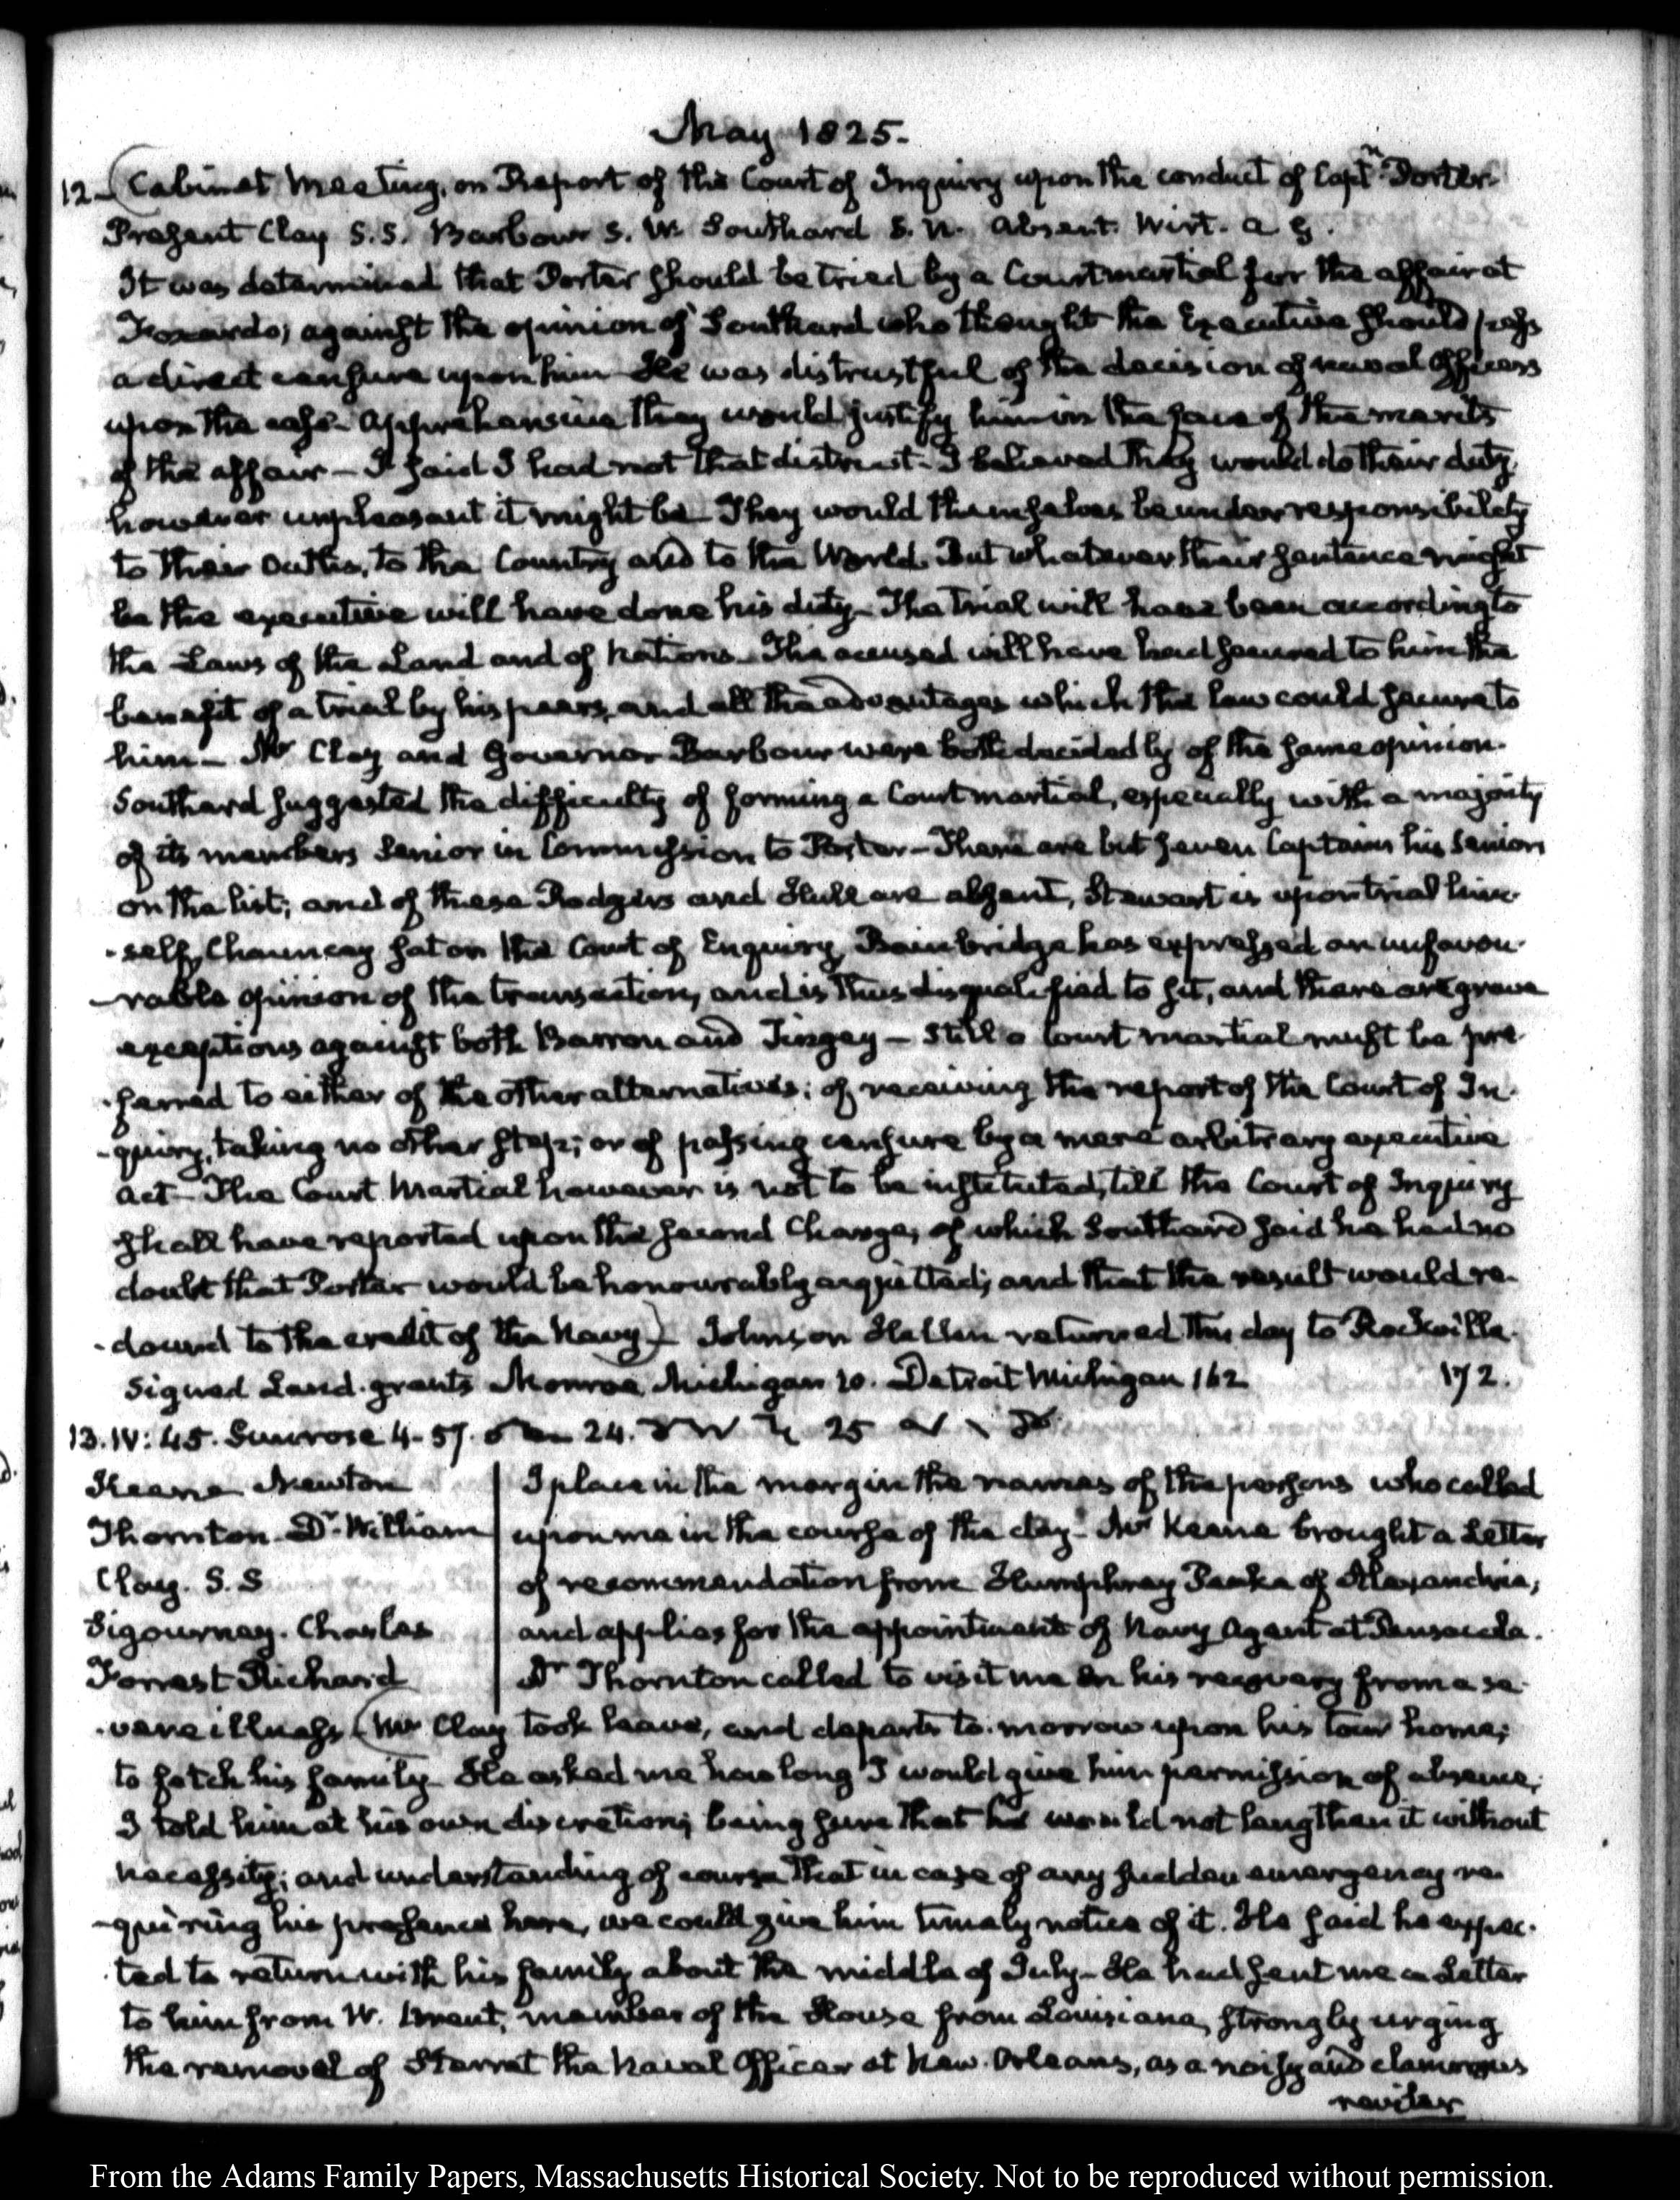 May 1825.
12- (Cabinet Meeting, on Report of the Court of Inquiry upon the conduct of Captn. Porter.
Present Clay S.S. Barbour S. W. Southard S. N. absent. Wirt. A G.
It was determined that Porter should be tried by a Court martial for the affair at
Foxardo; against the opinion of Southard who thought the Executive should pass
a direct censure upon him. He was distrustful of the decision of naval Officers
upon the case. Apprehensive they would justify him in the face of the merits
of the affair — I said I had not that distrust. I believed they would do their duty.
however unpleasant it might be. They would themselves be under responsibility
to their Oaths, to the Country and to the World. But whatever their sentence might
be the executive will have done his duty. The trial will have been according to
the Laws of the Land and of Nations. The accused will have had secured to him the
benefit of a trial by his peers, and all the advantages which the law could secure to
him — Mr Clay and Governor Barbour were both decidedly of the same opinion.
Southard suggested the difficulty of forming a Court martial, especially with a majority
of its members Senior in Commission to Porter — There are but seven Captains his Seniors
on the list; and of these Rodgers and Hull are absent, Stewart is upon trial him-
-self, Chauncey sat on the Court of Enquiry, Bainbridge has expressed an unfavou-
-rable opinion of the transaction, and is thus disqualified to sit, and there are grave
exceptions against both Barron and Tingey — Still a Court martial must be pre-
-ferred to either of the other alternatives; of receiving the report of the Court of In-
-quiry, taking no other step; or of passing censure by a mere arbitrary executive
act. The Court Martial however is not to be instituted, till the Court of Inquiry
shall have reported upon the second Charge, of which Southard said he had no
doubt that Porter would be honourably acquitted; and that the result would re-
-dound to the credit of the Navy) — Johnson Hellen returned this day to Rockville.
Signed Land-grants Monroe Michigan 10. Detroit Michigan 162 172.
13. IV: 45. Sun rose 4-57. 24. 25
Keene Newton
Thornton Dr. William
Clay. S. S
Sigourney. Charles
Forrest Richard
I place in the margin the names of the persons who called
upon me in the course of the day. Mr Keene brought a Letter
of recommendation from Humphrey Peake of Alexandria,
and applies for the appointment of Navy Agent at Pensacola.
Dr Thornton called to visit me on his recovery from a se-
-vere illness (Mr Clay took leave, and departs to-morrow upon his tour home;
to fetch his family. He asked me how long I would give him permission of absence;
I told him at his own discretion; being sure that he would not lengthen it without
necessity; and understanding of course that in case of any sudden emergency re-
-quiring his presence here, we could give him timely notice of it. He said he expec-
ted to return with his family about the middle of July. He had sent me a Letter
to him from W. Brent, member of the House from Louisiana, strongly urging
the removal of Sterret the Naval Officer at New-Orleans, as a noisy and clamorous
reviler
From the Adams Family Papers, Massachusetts Historical Society. Not to be reproduced without permission.